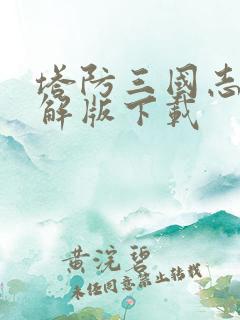 塔防三國志
解版下載
黄浣碧
未任同意禁止转载